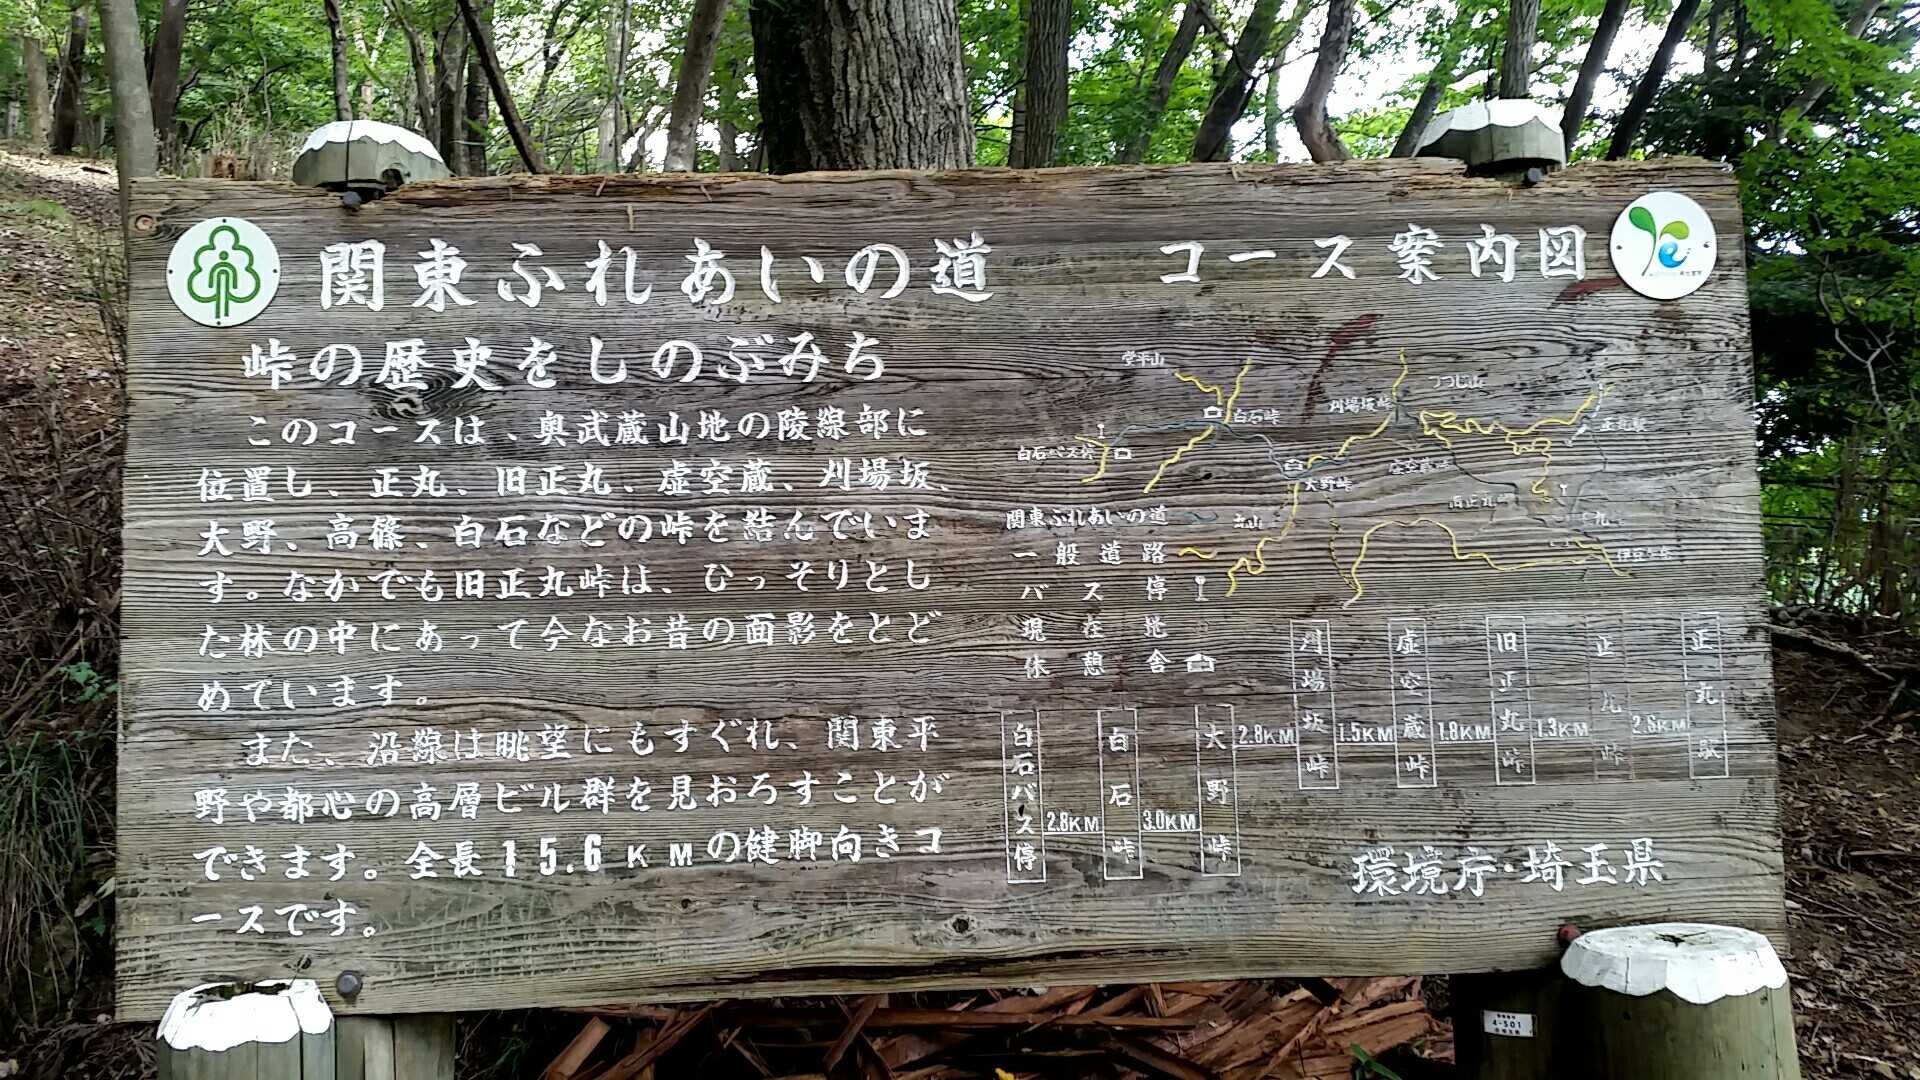 関東ふれあいの道 コース案内図
峠の歴史をしのぶみち
このコースは、奥武蔵山地の陵線部に
位置し、正丸、旧正丸、虚空蔵、刈場坂、
大野、高篠、白石などの峠を結んでいま
す。なかでも旧正丸峠は、ひっそりとし
た林の中にあって今なお昔の面影をとど
めています。
また、沿線は眺望にもすぐれ、関東平
野や都心の高層ビル群を見おろすことが
できます。全長15.6KMの健脚向きコ
ースです。
堂平山
白石峠
白石バス停
大野峠
刈場坂峠
つつじ山
虚空蔵峠
旧正丸峠
正丸駅
伊豆ケ岳
関東ふれあいの道
一般道路
バス停
現在地
休憩舎
白石バス停 2.8KM 白石峠 3.0KM 大野峠 2.8KM 刈場坂峠 1.5KM 虚空蔵峠 1.8KM 旧正丸峠 1.3KM 正丸峠 2.6KM 正丸駅
環境庁・埼玉県
4-501